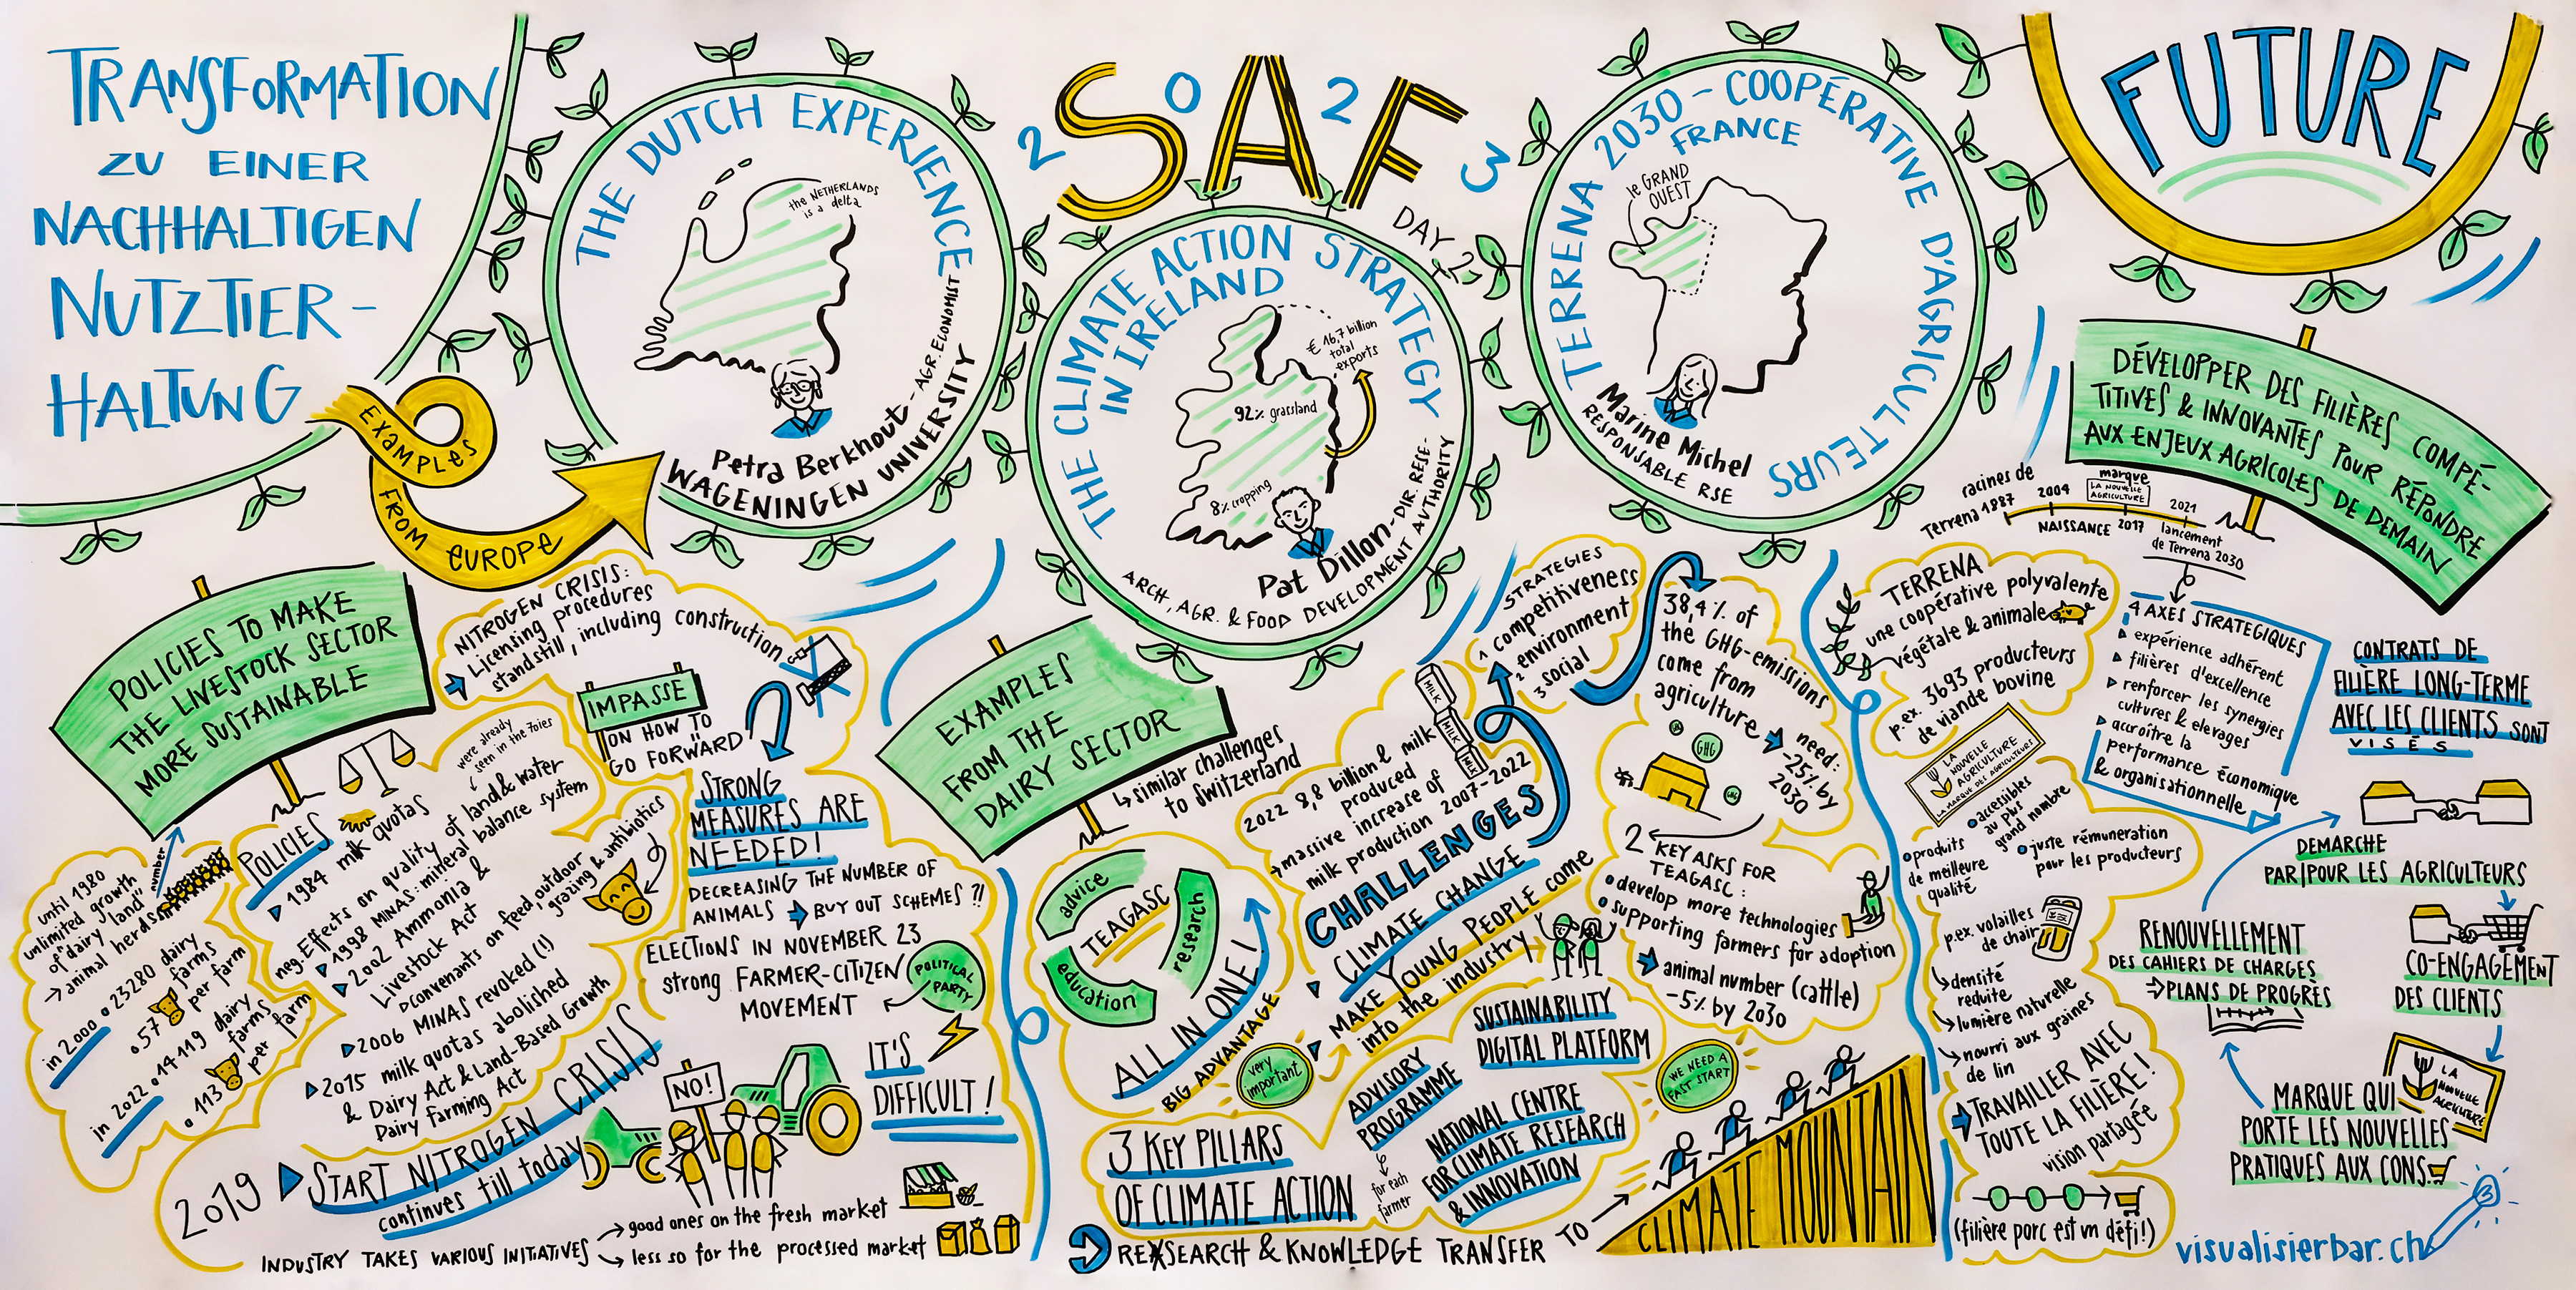 TRANSFORMATION
ZU EINER
NACHHALTIGEN
NUTZTIER-
HALTUNG
EXAMPLES
FROM EUROPE
2023
SAF
DAY 2
FUTURE
THE DUTCH EXPERIENCE
the NETHERLANDS
is a delta
Petra Berkhout - AGR. ECONOMIST
WAGENINGEN UNIVERSITY
THE CLIMATE ACTION STRATEGY
IN IRELAND
€ 16,7 billion
total
exports
92% grassland
8% cropping
Pat Dillon - DIR. RESE-
ARCH, AGR. & FOOD DEVELOPMENT AUTHORITY
TERRENA 2030 - COOPÉRATIVE D'AGRICULTEURS
FRANCE
le GRAND
OUEST
Marine Michel
RESPONSABLE RSE
POLICIES TO MAKE
THE LIVESTOCK SECTOR
MORE SUSTAINABLE
until 1980
unlimited growth
of "dairy land"
→ animal herds
number
in 2000 • 23280 dairy
farms
• 57 per farm
in 2022 • 14'119 dairy
farms
• 113 per farm
POLICIES
1984 milk quotas
were already
seen in the 70ies
neg. Effects on quality of land & water
1998 MINAS: mineral balance system
2002 Ammonia &
Livestock Act
convenants on feed, outdoor
grazing & antibiotics
2006 MINAS revoked (!)
2015 milk quotas abolished
& Dairy Act & Land-Based Growth
Dairy Farming Act
2019 START NITROGEN CRISIS
continues till today
NO!
INDUSTRY TAKES VARIOUS INITIATIVES
→ good ones on the fresh market
→ less so for the processed market
NITROGEN CRISIS:
Licensing procedures
standstill, including construction
IMPASSE
ON HOW TO
GO FORWARD
STRONG
MEASURES ARE
NEEDED!
DECREASING THE NUMBER OF
ANIMALS → BUY OUT SCHEMES ?!
ELECTIONS IN NOVEMBER 23
strong FARMER-CITIZEN
MOVEMENT
POLITICAL
PARTY
IT'S
DIFFICULT!
EXAMPLES
FROM THE
DAIRY SECTOR
↳ similar challenges
to Switzerland
TEAGASC
advice
research
education
ALL IN ONE!
BIG ADVANTAGE
2022 8,8 billion l milk
produced
→ massive increase of
milk production 2007-2022
MILK
MILK
MILK
CHALLENGES
CLIMATE CHANGE
MAKE YOUNG PEOPLE come
into the industry
very
important
STRATEGIES
1 competitiveness
2 environment
3 social
38,4% of
the GHG-emissions
come from
agriculture
→ need:
-25% by
2030
GHG
2 KEY ASKS FOR
TEAGASC:
• develop more technologies
• supporting farmers for adoption
→ animal number (cattle)
-5% by 2030
3 KEY PILLARS
OF CLIMATE ACTION
ADVISORY
PROGRAMME
for each
farmer
SUSTAINABILITY
DIGITAL PLATFORM
NATIONAL CENTRE
FOR CLIMATE RESEARCH
& INNOVATION
WE NEED A
FAST START
RESEARCH & KNOWLEDGE TRANSFER TO →
CLIMATE MOUNTAIN
DÉVELOPPER DES FILIÈRES COMPÉ-
TITIVES & INNOVANTES POUR RÉPONDRE
AUX ENJEUX AGRICOLES DE DEMAIN
racines de
Terrena 1887
2004
NAISSANCE
marque
LA NOUVELLE
AGRICULTURE
2017
2021
lancement
de Terrena 2030
TERRENA
une coopérative polyvalente
végétale & animale
p.ex. 3693 producteurs
de viande bovine
4 AXES STRATEGIQUES
expérience adhérent
filières d'excellence
renforcer les synergies
cultures & elevages
accroître la
performance économique
& organisationnelle
LA
NOUVELLE
AGRICULTURE
LA MARQUE DES AGRICULTEURS
• produits
de meilleure
qualité
• accessibles
au plus
grand nombre
• juste rémuneration
pour les producteurs
p.ex. volailles
de chair
densité
reduite
lumière naturelle
nourri aux graines
de lin
TRAVAILLER AVEC
TOUTE LA FILIÈRE!
vision partagée
(filière porc est un défi!)
CONTRATS DE
FILIÈRE LONG-TERME
AVEC LES CLIENTS SONT
VISÉS
DEMARCHE
PAR/POUR LES AGRICULTEURS
CO-ENGAGEMENT
DES CLIENTS
LA
NOUVELLE
AGRICULTURE
MARQUE QUI
PORTE LES NOUVELLES
PRATIQUES AUX CONS.
RENOUVELLEMENT
DES CAHIERS DE CHARGES
→ PLANS DE PROGRÈS
visualisierbar.ch
3